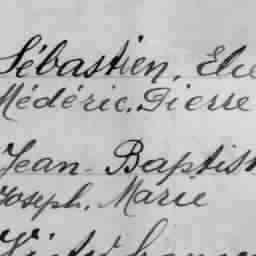 Sébastien, Elie
Médéric. Pierre
Jean-Baptis
Joseph, Marie